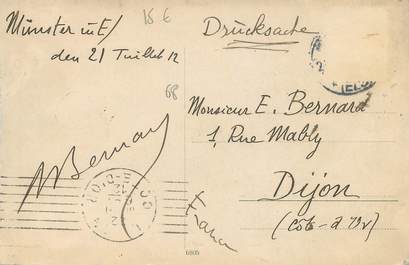 18 6
Münster in E/
den 21 Juillet 12
68
Bernard
Drücksache
Monsieur E. Bernard
1, Rue Mably
Dijon
(Côte-d'Or)
France
6805